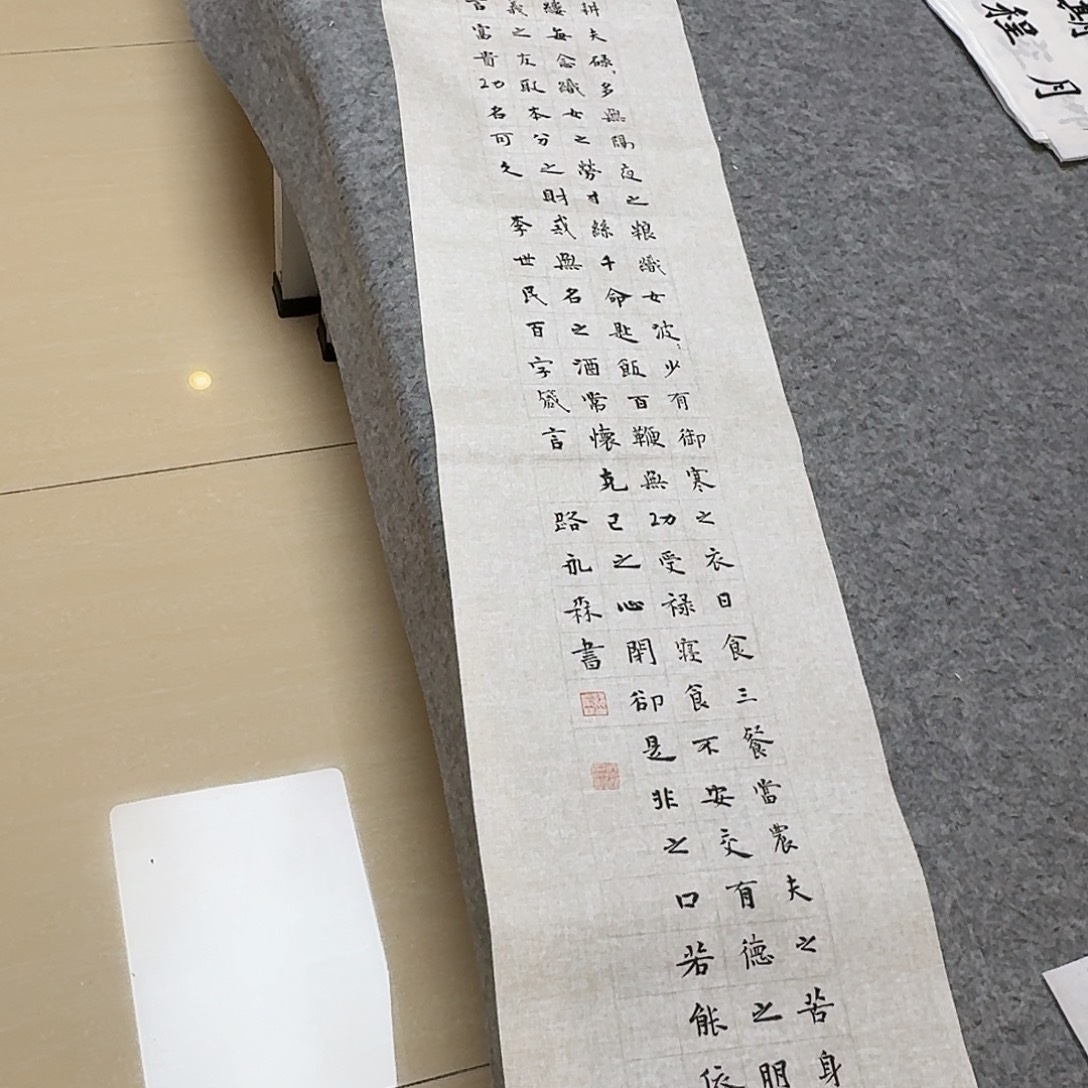 耕夫碌、多無隔夜之粮織女波、少有御寒之衣日食三餐當農夫之苦身
縷每念織女之勞寸絲千命匙飯百鞭無功受禄寝食不安交有德之朋
義之友取本分之財戒無名之酒常懷克己之心閉卻是非之口若能依
言富貴功名可久
李世民百字箴言
路永森書
期月
程